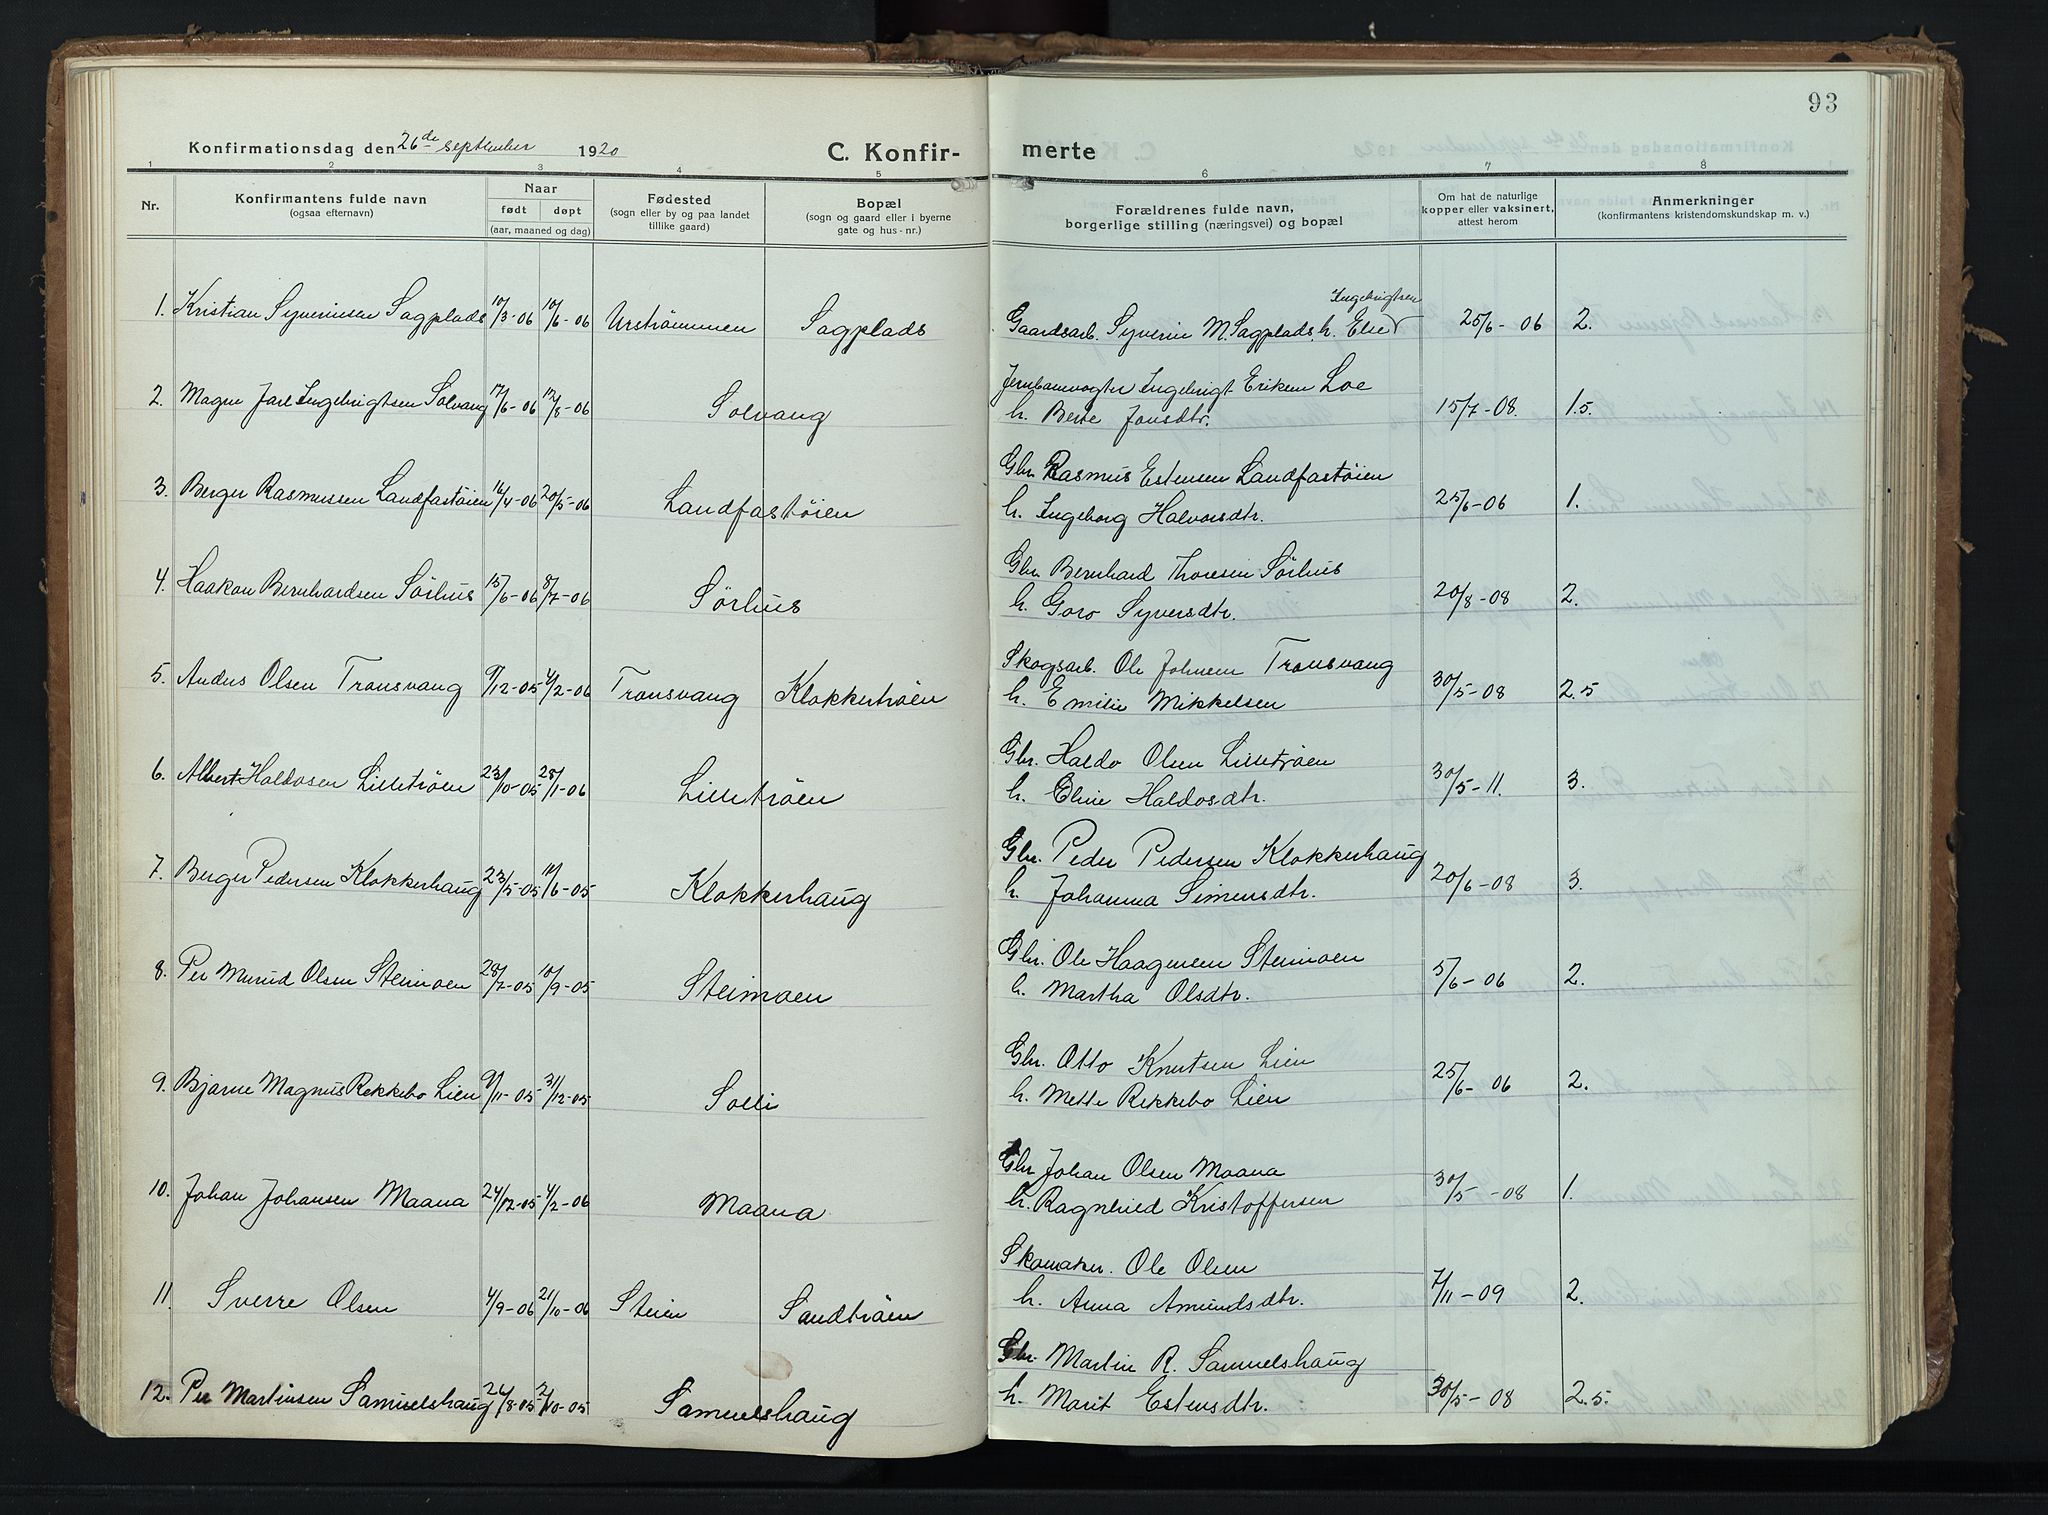 93
Konfirmationsdag den 26de september 1920
C. Konfirmerte
1 2 3 4 5 6 7 8
Nr. Konfirmantens fulde navn (ogsaa efternavn) Naar født døpt (aar, maaned og dag) Fødested (sogn eller by og paa landet tillike gaard) Bopæl (sogn og gaard eller i byerne gate og hus-nr.) Forældrenes fulde navn, borgerlige stilling (næringsvei) og bopæl Om hat de naturlige kopper eller vaksinert, attest herom Anmerkninger (konfirmantens kristendomskundskap m. v.)
Ingebrigtsen
1. Kristian Syverinsen Sagplads 10/3-06 10/6-06 Urstrømmen Sagplads Gaardsarb. Syverin M. Sagplads, h. Elie 25/6-06 2.
2. Magne Jarl Ingebrigtsen Solvang 17/6-06 12/8-06 Solvang Jernbanevogter Ingebrigt Eriksen Loe
h. Berte Jonsdtr. 15/7-08. 1.5.
3. Berger Rasmussen Landfastøien 16/4-06 20/5-06 Landfastøien Gbr. Rasmus Estensen Landfastøien
h. Ingeborg Halvorsdtr. 25/6-06 1.
4. Haakon Bernhardsen Sørhus 15/6-06 8/7-06 Sørhus Gbr. Bernhard Thoresen Sørhus
h. Goro Syversdtr. 20/8-08 2.
5. Anders Olsen Transvang 9/12-05 4/2-06 Transvang Klokkertrøen Skogsarb. Ole Johnsen Transvang
h. Emilie Mikkelsen 30/5-08 2.5
6. Albert Haldosen Lilletrøen 23/10-05 28/1-06 Lilletrøen Gbr. Haldo Olsen Lilletrøen
h. Eline Haldosdtr. 30/5-11. 3.
7. Berger Pedersen Klokkerhaug 23/5-05 10/6-05 Klokkerhaug Gbr. Peder Pedersen Klokkerhaug
h. Johanna Simensdtr. 20/6-08 3.
8. Per Murud Olsen Steimoen 28/7-05 10/9-05 Steimoen Gbr. Ole Haagensen Steimoen
h. Martha Olsdtr. 5/6-06 2.
9. Bjarne Magnus Rekkebo Lien 9/11-05 31/12-05 Solli Gbr. Otto Knutsen Lien
h. Mette Rekkebo Lien 25/6-06 2.
10. Johan Johansen Maana 24/12-05 4/2-06 Maana Gbr. Johan Olsen Maana
h. Ragnhild Kristoffersen 30/5-08 1.
11. Sverre Olsen 4/9-06 21/10-06 Steien Sandtrøen Skomaker. Ole Olsen
h. Anna Amundsdtr. 7/11-09 2.
12. Per Martinsen Samuelshaug 26/8-05 2/10-05 Samuelshaug Gbr. Martin R. Samuelshaug
h. Marit Estensdtr. 30/5-08 2.5.